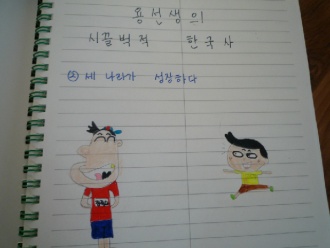 용선생의
시끌벅적 한국사
② 세 나라가 성장하다